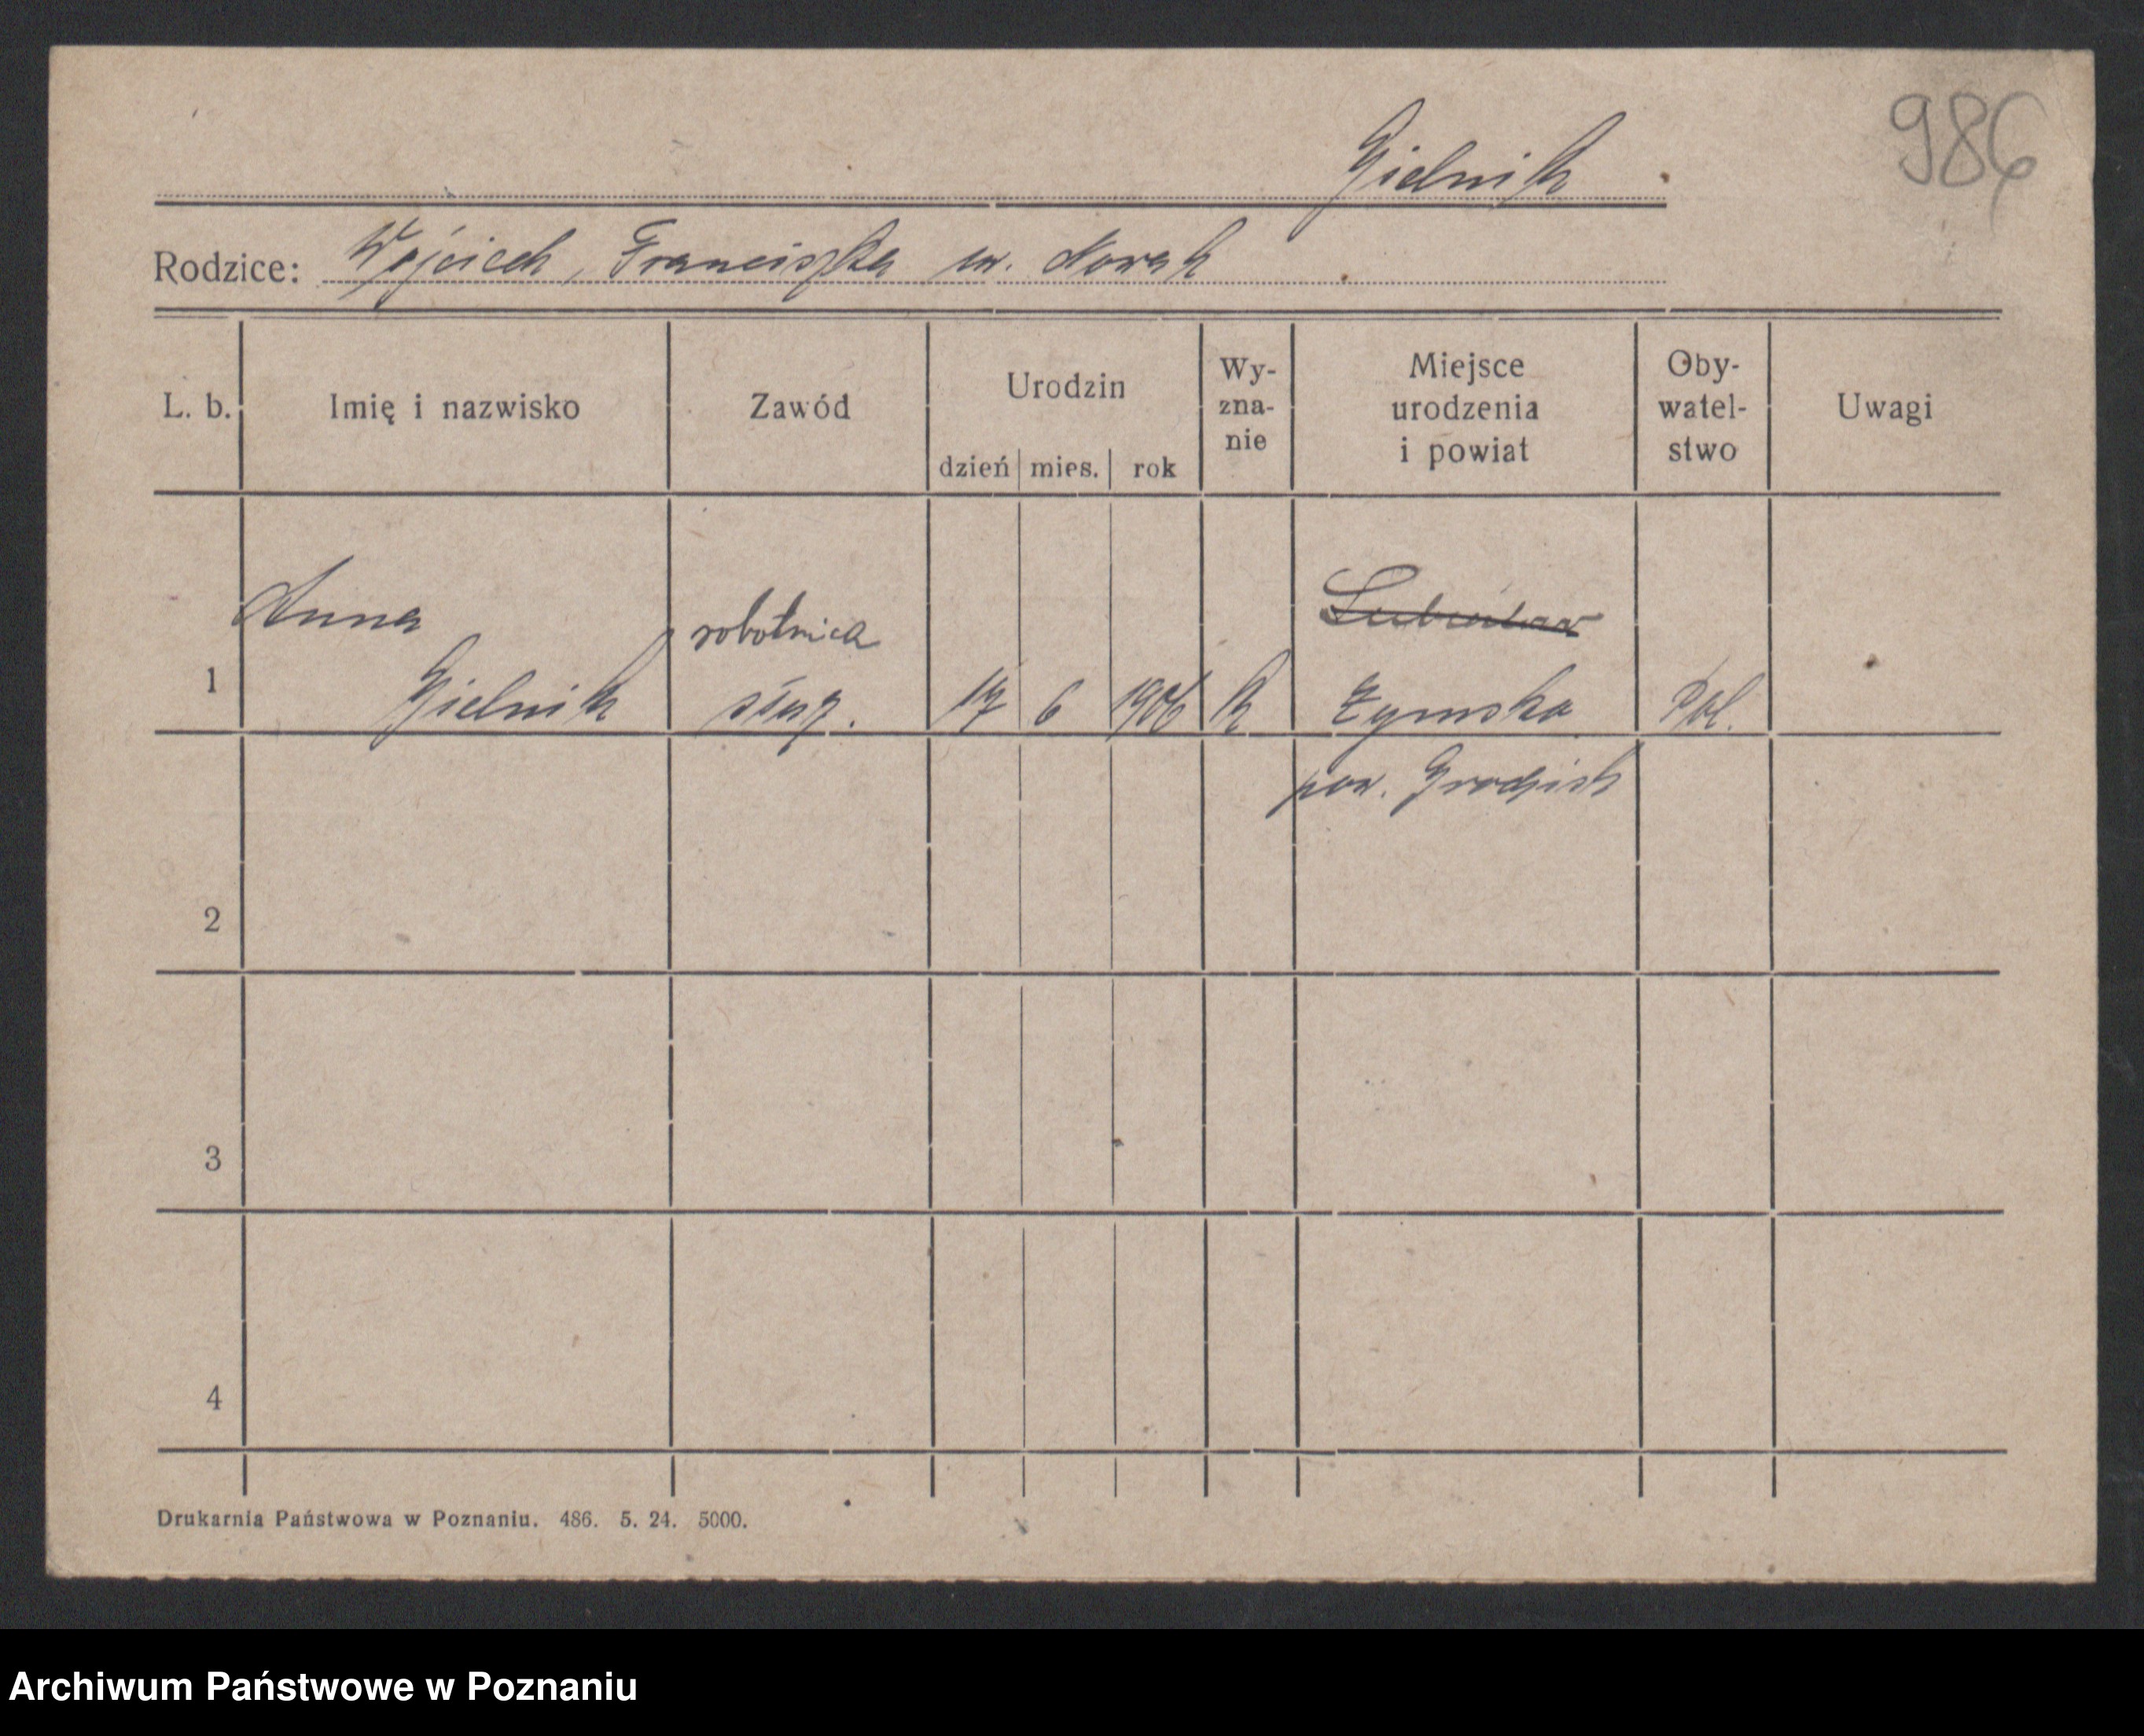 986
Gielnik
Rodzice: Wojciech, Franciszka ur. Nowak
L. b. Imię i nazwisko Zawód Urodzin dzień mies. rok Wy-zna-nie Miejsce urodzenia i powiat Oby-watel-stwo Uwagi
Anna robotnica
1 Gielnik służ. 17 6 1906 k Pol.
pow. Grodzisk
2
3
4
Drukarnia Państwowa w Poznaniu. 486. 5. 24. 5000.
Archiwum Państwowe w Poznaniu